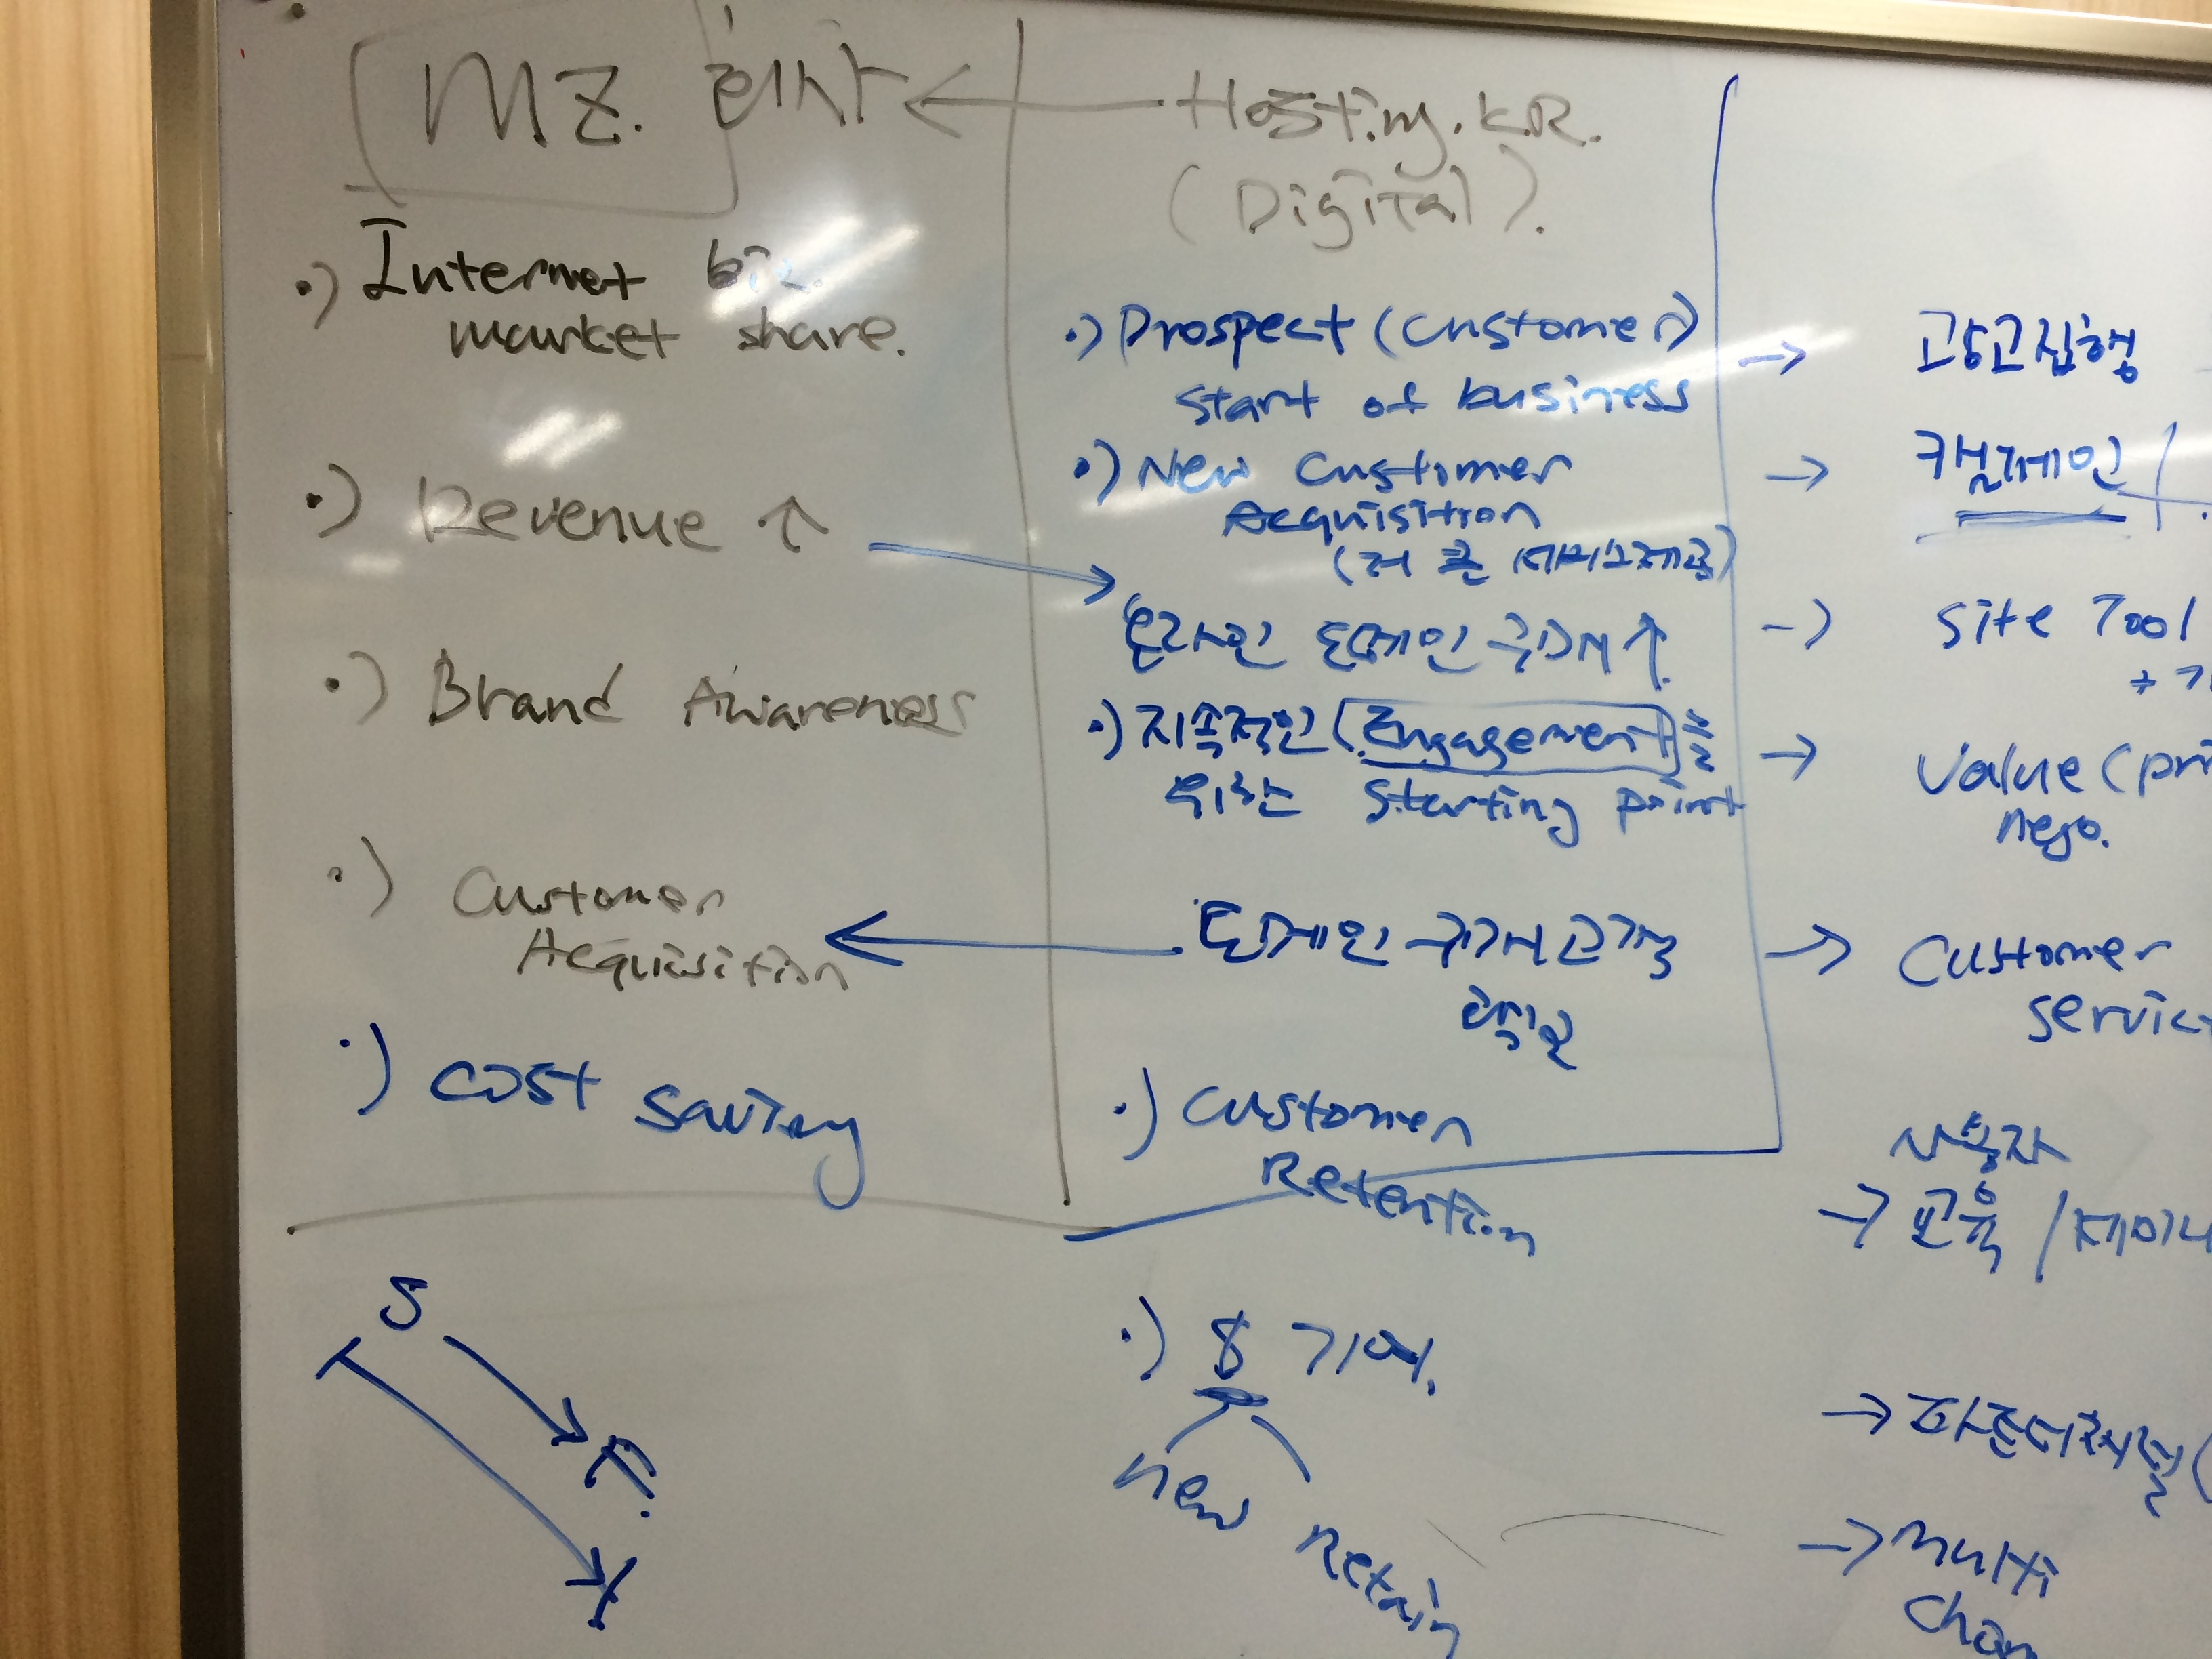 MZ. 회사
Hosting.KR.
(Digital).
·) Internet biz.
market share.
·) Revenue ↑
·) Brand Awareness
·) Customer
Acquisition
·) Cost Saving
·) Prospect (Customer)
start of business
·) New Customer
Acquisition
(더 큰 서비스제공)
온라인 도메인 구매↑
·) 지속적인 (Engagement)를
위한 Starting point
도메인 구매고객
혜택
·) Customer
Retention
·) $ 기여.
new Retain
→ 광고집행
→ 캠페인
→ Site Tool
→ Value (pri
nego.
→ Customer
Servic
사용자
→ 교육 /
→ 파트너채널 (
→ Multi
Chan
S